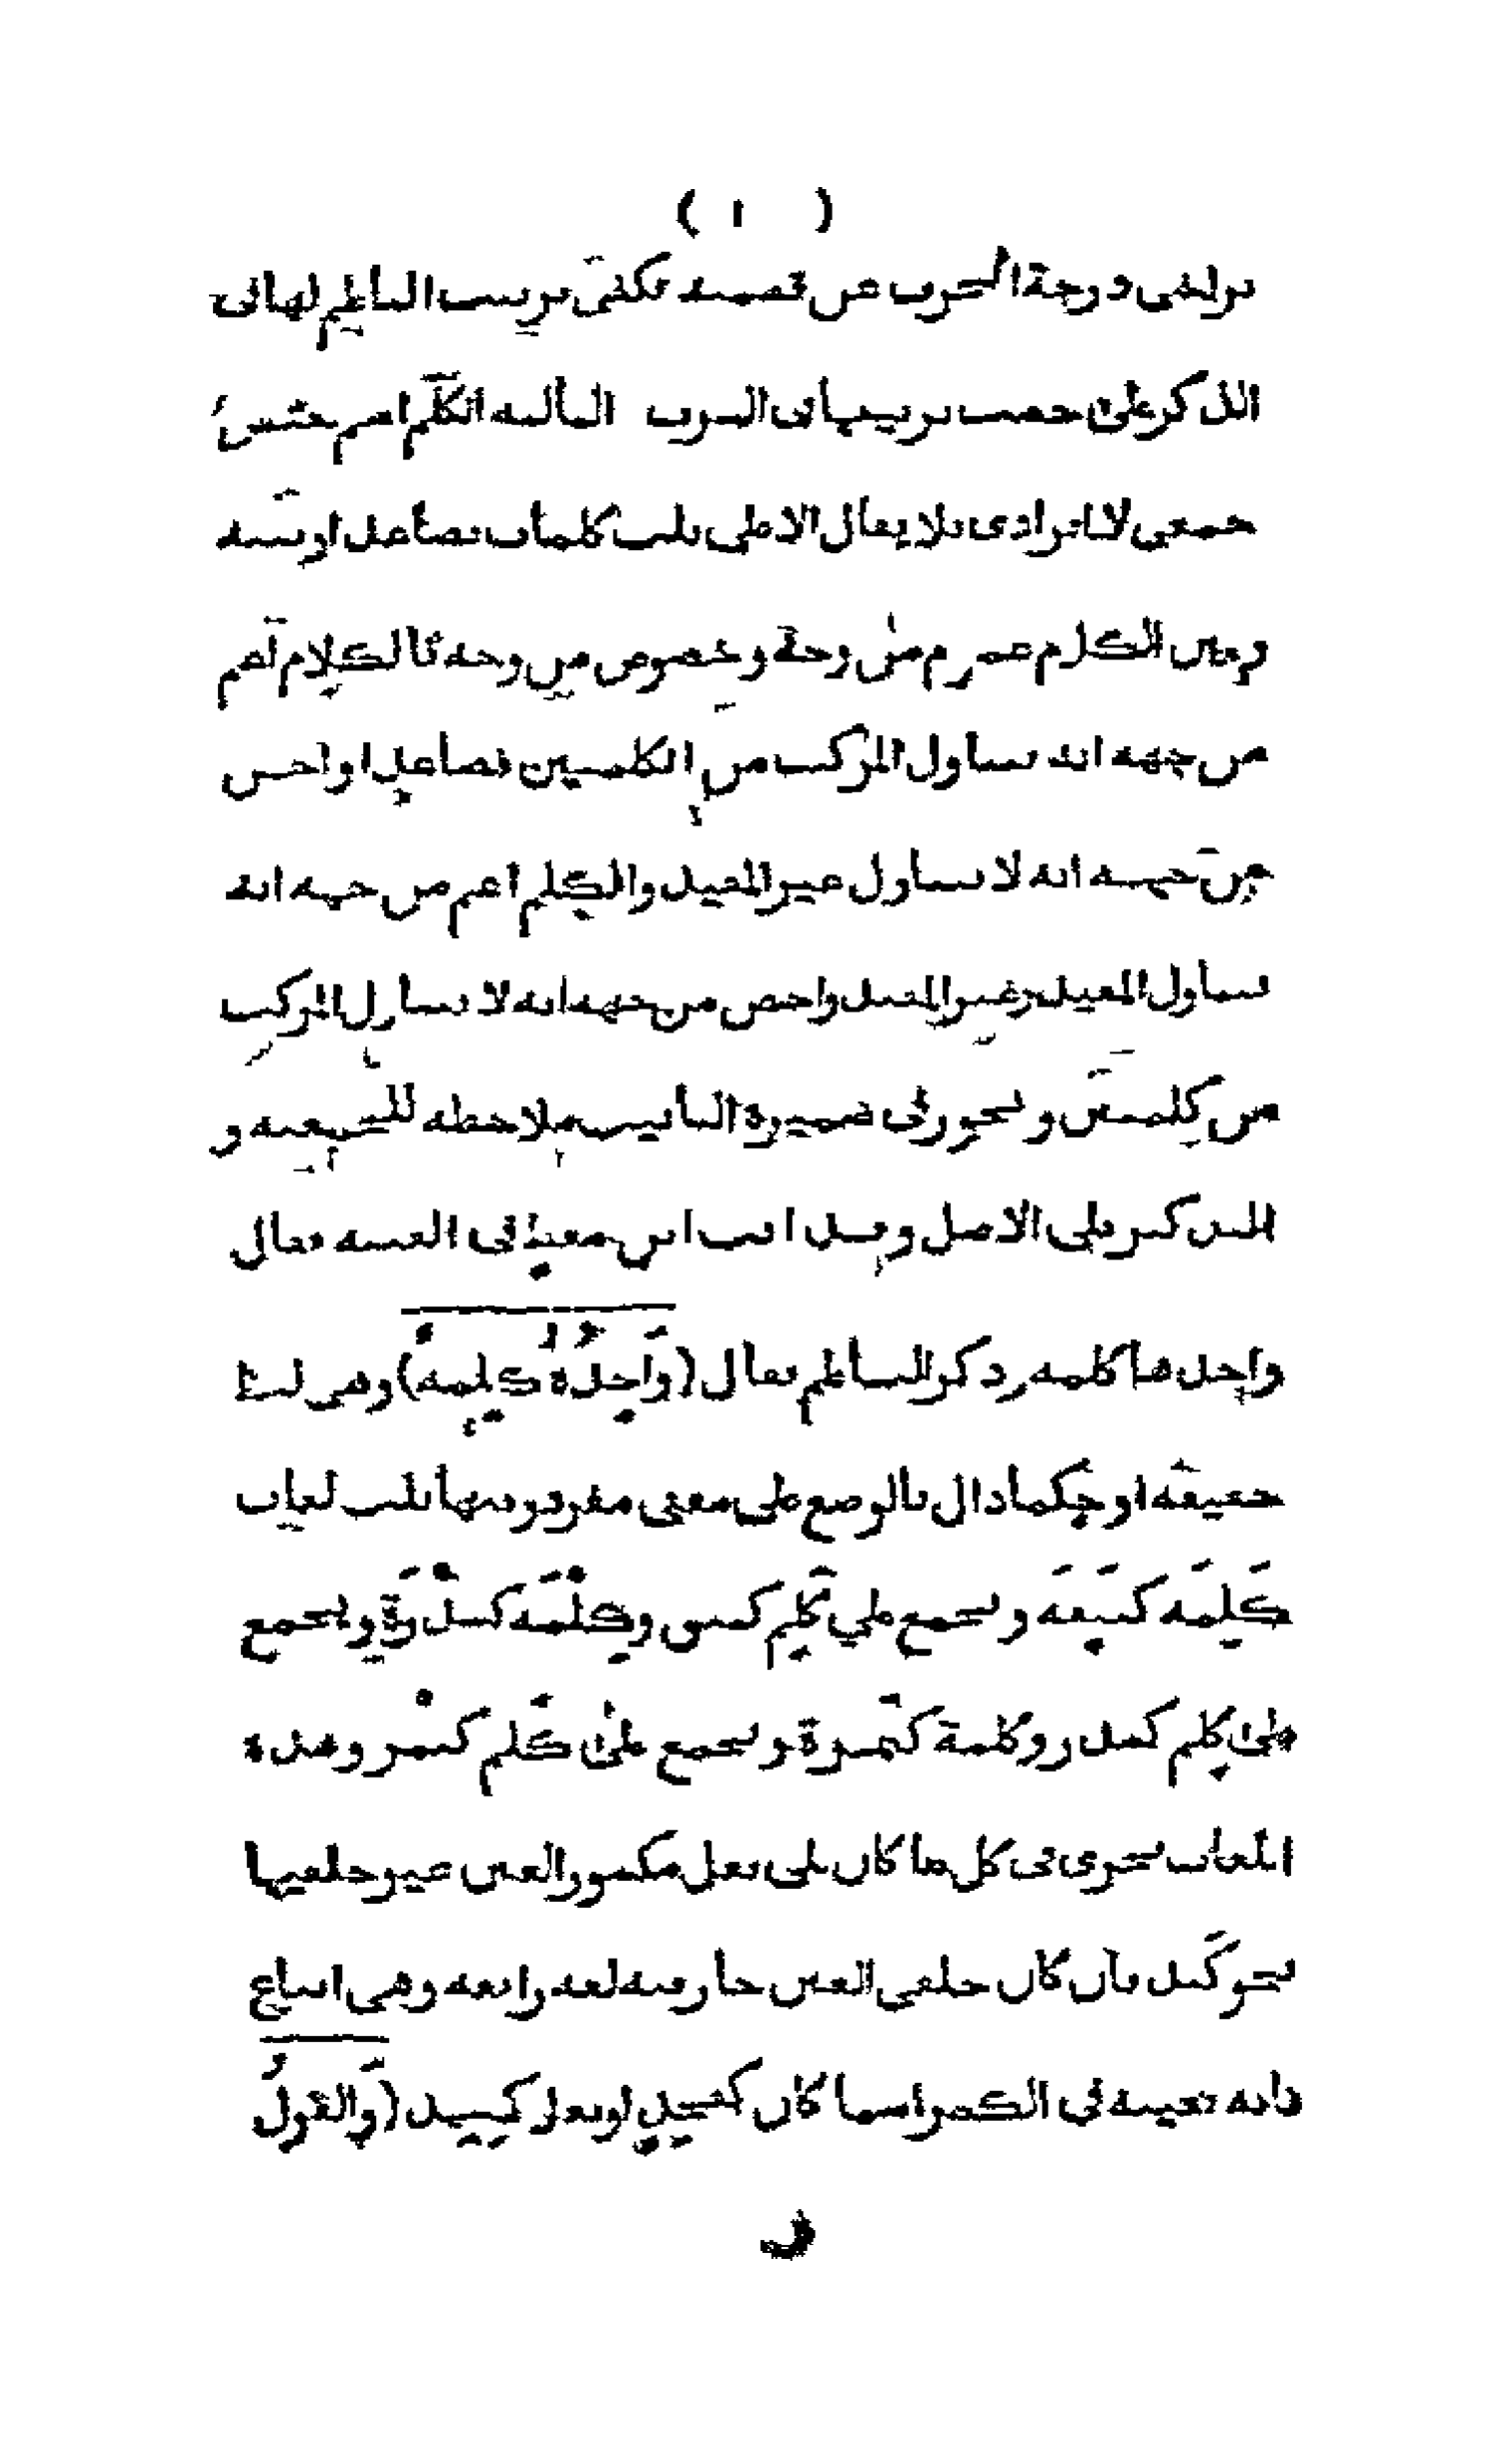 ( ١ )
تراخى درجة الحرف عن قسميه تكفى ترتيب الناظم لها فى
الذكر على حسب ترتيبها فى الشرف الثالثه الكلم اسم جنس
جمعى لا افرادى فلا يقال الا على ثلث كلمات فصاعدا
وبين الكلام عموم من وجه وخصوص من وجه فالكلام اعم
من جهه انه يتناول المركب من الكلمتين فصاعدا واخص
من جهه انه لا يتناول غير المفيد والكلم اعم من جهه انه
يتناول المفيد وغير المفيد واخص من جهه انه لا يتناول المركب
من كلمتين ويجوز فى ضميره التانيث ملاحظه للجمعيه و
التذكير على الاصل وقد انث ابن معط فى الفيته فقال
واحدها كلمه وذكر الناظم فقال (وَاحِدُهُ كَلِمَةٌ) وهى لفظ
حقيقه او حكما دال بالوضع على معنى مفرد وفيها ثلث لغات
كَلِمَه كنَبِقَه وتجمع على كَلِم كنبق وكِلْمَه كسِدْرَة وتجمع
على كِلم كسدر وكلمة كتمرة وتجمع على كَلْم كتمر وهذه
اللغات تجرى فى كل ما كان على فعل مكسور العين غير حلقيها
نحو كبد فان كان حلقى العين جاز فيه لغه رابعه وهى اتباع
فائه لعينه فى الكسر اسما كان كفخذ او فعلا كشهد (وَالقَولُ